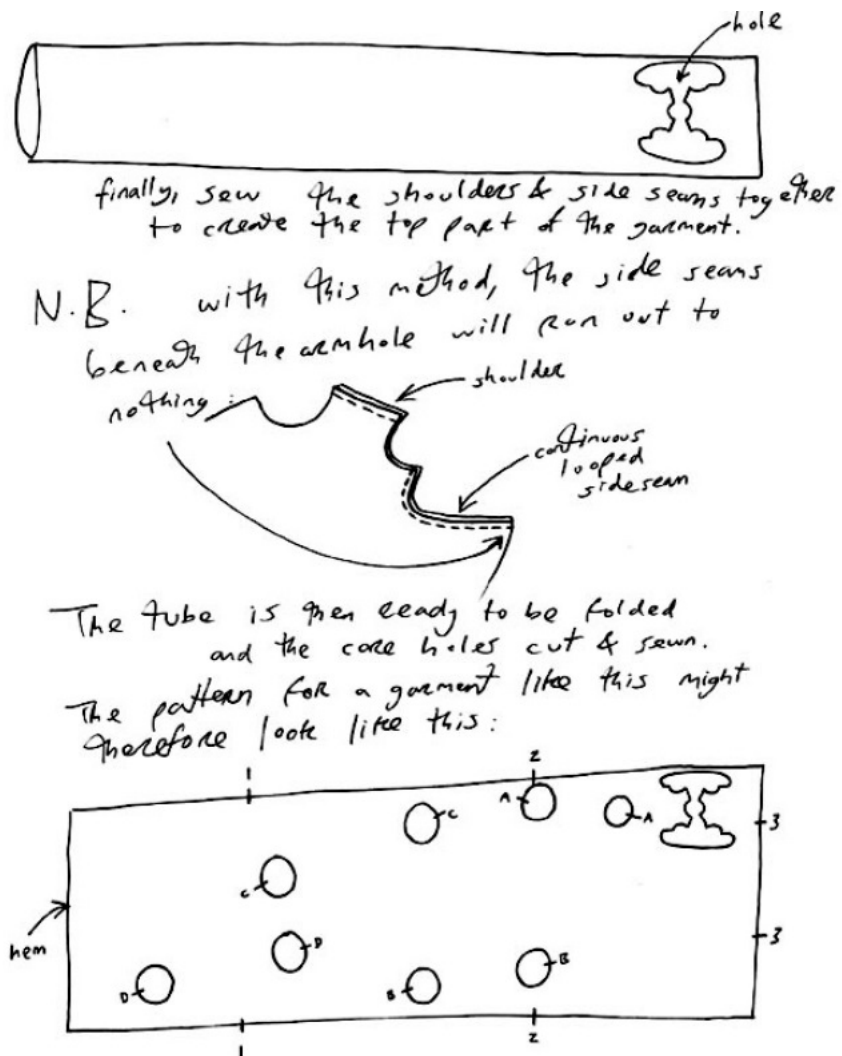 hole
finally, sew the shoulders & side seams together
to create the top part of the garment.
N.B. with this method, the side seams
beneath the armhole will run out to
nothing:
shoulder
continuous
looped
side seam
The tube is then ready to be folded
and the core holes cut & sewn.
The pattern for a garment like this might
therefore look like this:
1
2
C
A
A
3
C
D
3
hem
D
B
B
1
2